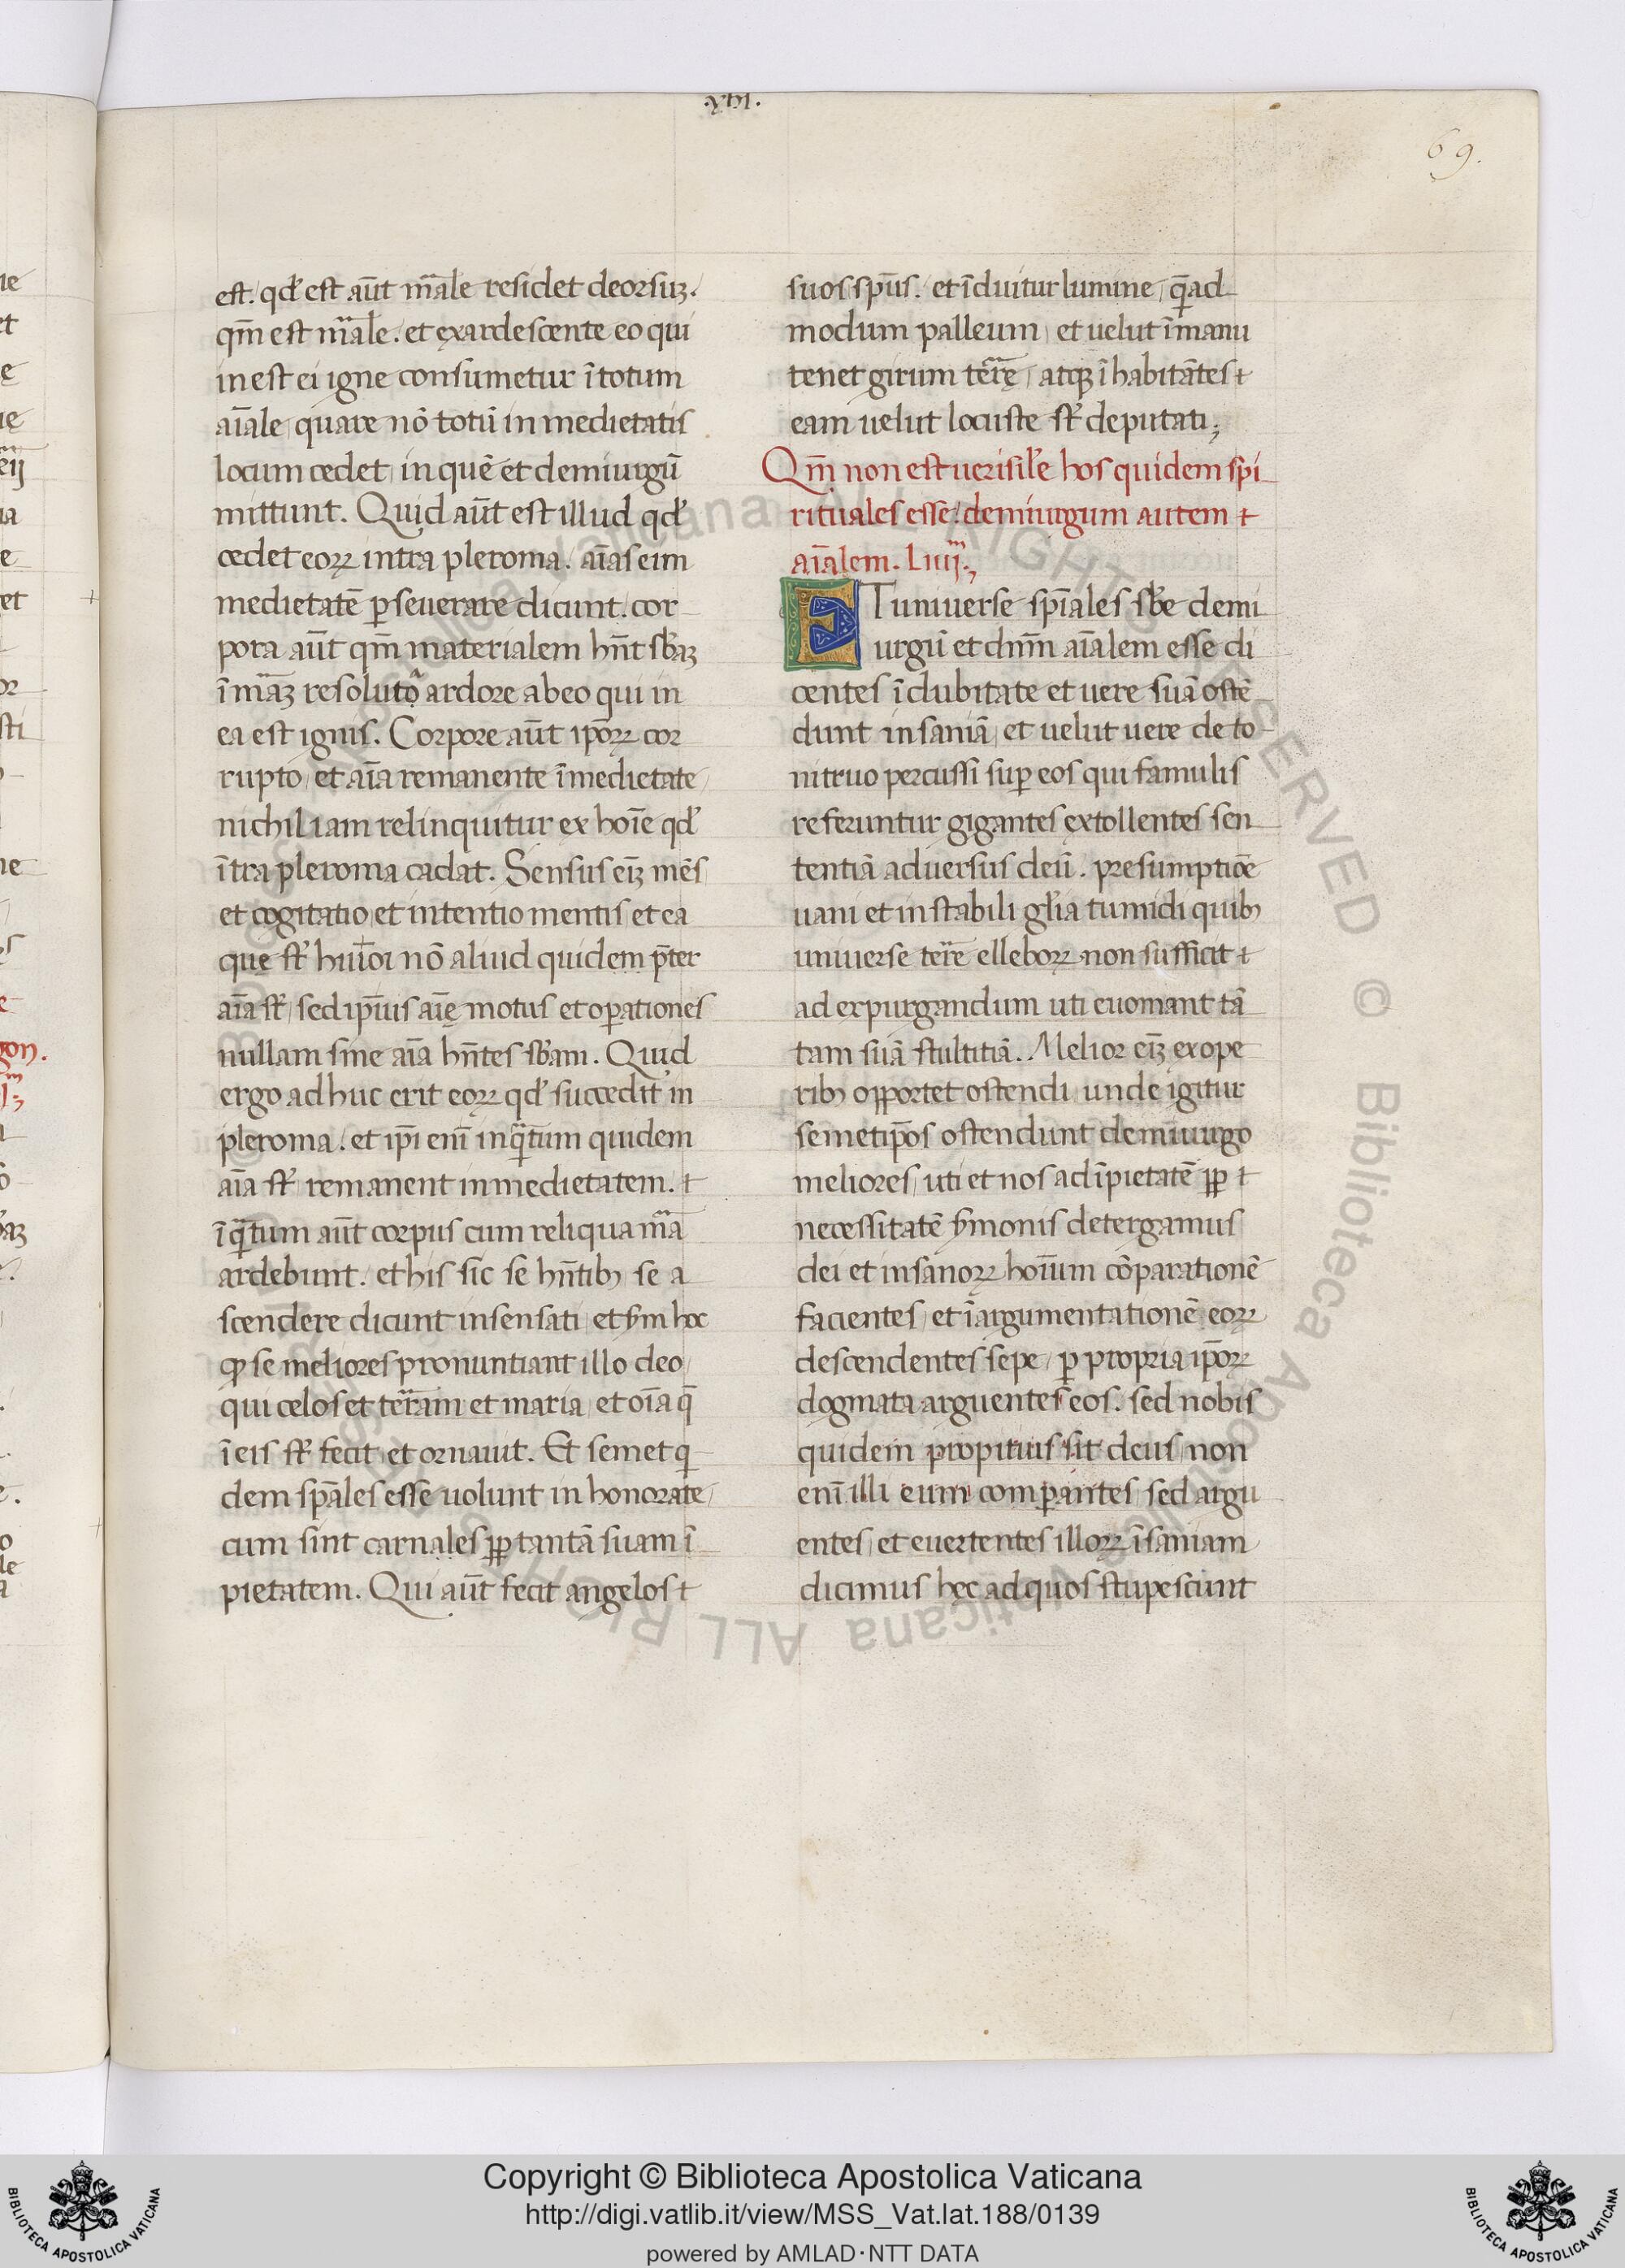 .XIII.
69.
est. qđ est aūt m̄ale residet deorsuꝫ.
qm̄ est m̄ale. et exardescente eo qui
in est ei igne consumetur ī totum
aīale quare nō totū in medietatis
locum cedet in quē et demiurgū
mittunt. Quid aūt est illud qđ
cedet eoꝝ intra pleroma. aīas eim
medietatē ꝑseuerare dicunt. cor
pora aūt qm̄ materialem hn̄t sb̄aꝫ
ī māꝫ resoluto ardore ab eo qui in
ea est ignis. Corpore aūt ip̄oꝝ cor
rupto et aīa remanente ī medietate
nichil iam relinquitur ex hoīe qđ
ītra pleroma cadat. Sensus eiꝫ mēs
et cogitatio et intentio mentis et ea
que st̄ hui⁹oī nō aluid quidem p̄ter
aīa st̄ sed ip̄ius aīę motus et oꝑationes
nullam sine aīa hn̄tes sb̄am. Quid
ergo ad huc erit eoꝝ qđ succedit in
pleroma. et ip̄i enī inq̄tum quidem
aīa st̄ remanent in medietatem. ⁊
īq̄tum aūt corpus cum reliqua mā
ardebunt. et his sic se hn̄tibꝫ se a
scendere dicunt insensati et ẜm hoc
ꝙ se meliores pronuntiant illo deo
qui celos et terram et maria et oīa q̄
ī eis st̄ fecit et ornauit. Et semet q
dem sp̄ales esse uolunt in honorate
cum sint carnales ꝓp tantā suam ī
pietatem. Qui aūt fecit angelos ⁊
suos sp̄us. et īduitur lumine q̄ad
modum palleum et uelut ī manu
tenet girum terrę atqꝫ ī habitātes ⁊
eam uelut locuste st̄ deputati;
Qm̄ non est uerisil̄e hos quidem spi
rituales esse. demiurgum autem ⁊
aīalem. Liiij.;
ET uniuerse sp̄iales sb̄e demi
urgū et dnm̄ aīalem esse di
centes ī dubitate et uere suā ostē
dunt insaniā et uelut uere de to
nitruo percussi suꝑ eos qui famulis
referuntur gigantes extollentes sen
tentiā aduersus deū. presumptiōe
uani et instabili gl̄ia tumidi quibꝫ
uniuerse terre elleboꝝ non sufficit ⁊
ad expurgandum uti euomant tā
tam suā stultitiā. Melior eiꝫ ex ope
ribꝫ opportet ostendi unde igitur
semetip̄os ostendunt demiurgo
meliores uti et nos ad īpietatē ꝓp ⁊
necessitatē ẜmonis detergamus
dei et insanoꝝ hoīum cōparationē
facientes et ī argumentationē eoꝝ
descendentes sepe ꝑ propria ip̄oꝝ
dogmata arguentes eos. sed nobis
quidem propitius sit deus non
enī illi eum comꝑantes sed argu
entes et euertentes illoꝝ īsaniam
dicimus hęc ad quos stupescunt
Copyright © Biblioteca Apostolica Vaticana
http://digi.vatlib.it/view/MSS_Vat.lat.188/0139
powered by AMLAD·NTT DATA